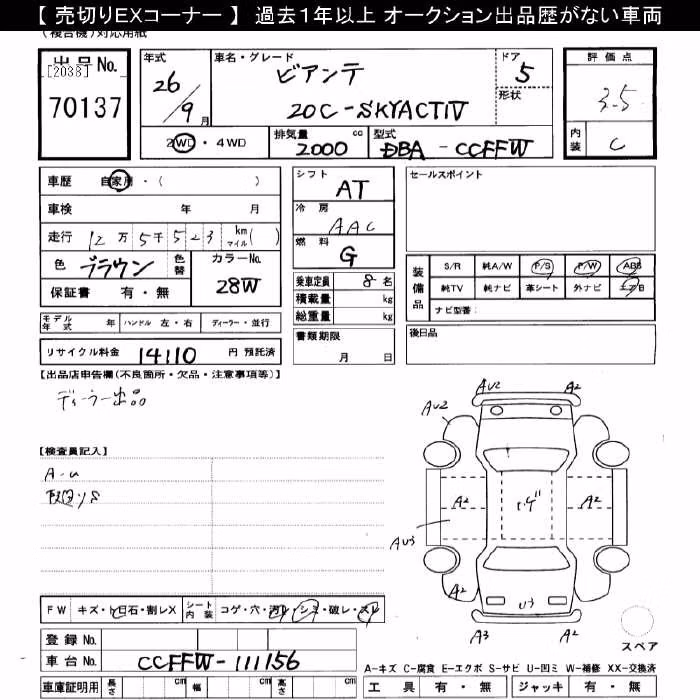 【 売切りEXコーナー 】 過去1年以上 オークション出品歴がない車両
(複合機)対応用紙
出 品 No.
[2038]
70137
年式
26/9月
車名・グレード
ビアンテ
20C-SKYACTIV
ドア
5
形状
評 価 点
3.5
内装
C
2WD・4WD
排気量
2000 cc
型式
DBA - CCFFW
車歴 自家用・( )
車検 年 月
走行 12万5千523 km マイル( )
色 ブラウン 色替
カラーNo.
28W
保証書 有・無
シフト
AT
冷 房
AAC
燃 料
G
乗車定員 8 名
積載量 kg
総重量 kg
書類期限
月 日
セールスポイント
装備品
S/R 純A/W P/S P/W ABS
純TV 純ナビ 革シート 外ナビ エアB
ナビ型番:
後日品
モデル年式 年 ハンドル 左・右 ディーラー・並行
リサイクル料金 14110 円 預託済
【出品店申告欄(不良箇所・欠品・注意事項等)】
ディーラー出品
【検査員記入】
A-u
AU2
A2
AU2
A2
A2
A2
AU3
A2
A2
U3
A3
A2
スペア
FW キズ・ト・石・割レX
シート内装
コゲ・穴・汚レ・シミ・破レ・スレ
登 録 No.
車 台 No.
CCFFW-111156
車庫証明用 長さ cm 幅 cm 高さ cm
A-キズ C-腐食 E-エクボ S-サビ U-凹ミ W-補修 XX-交換済
工 具 有・無 ジャッキ 有・無